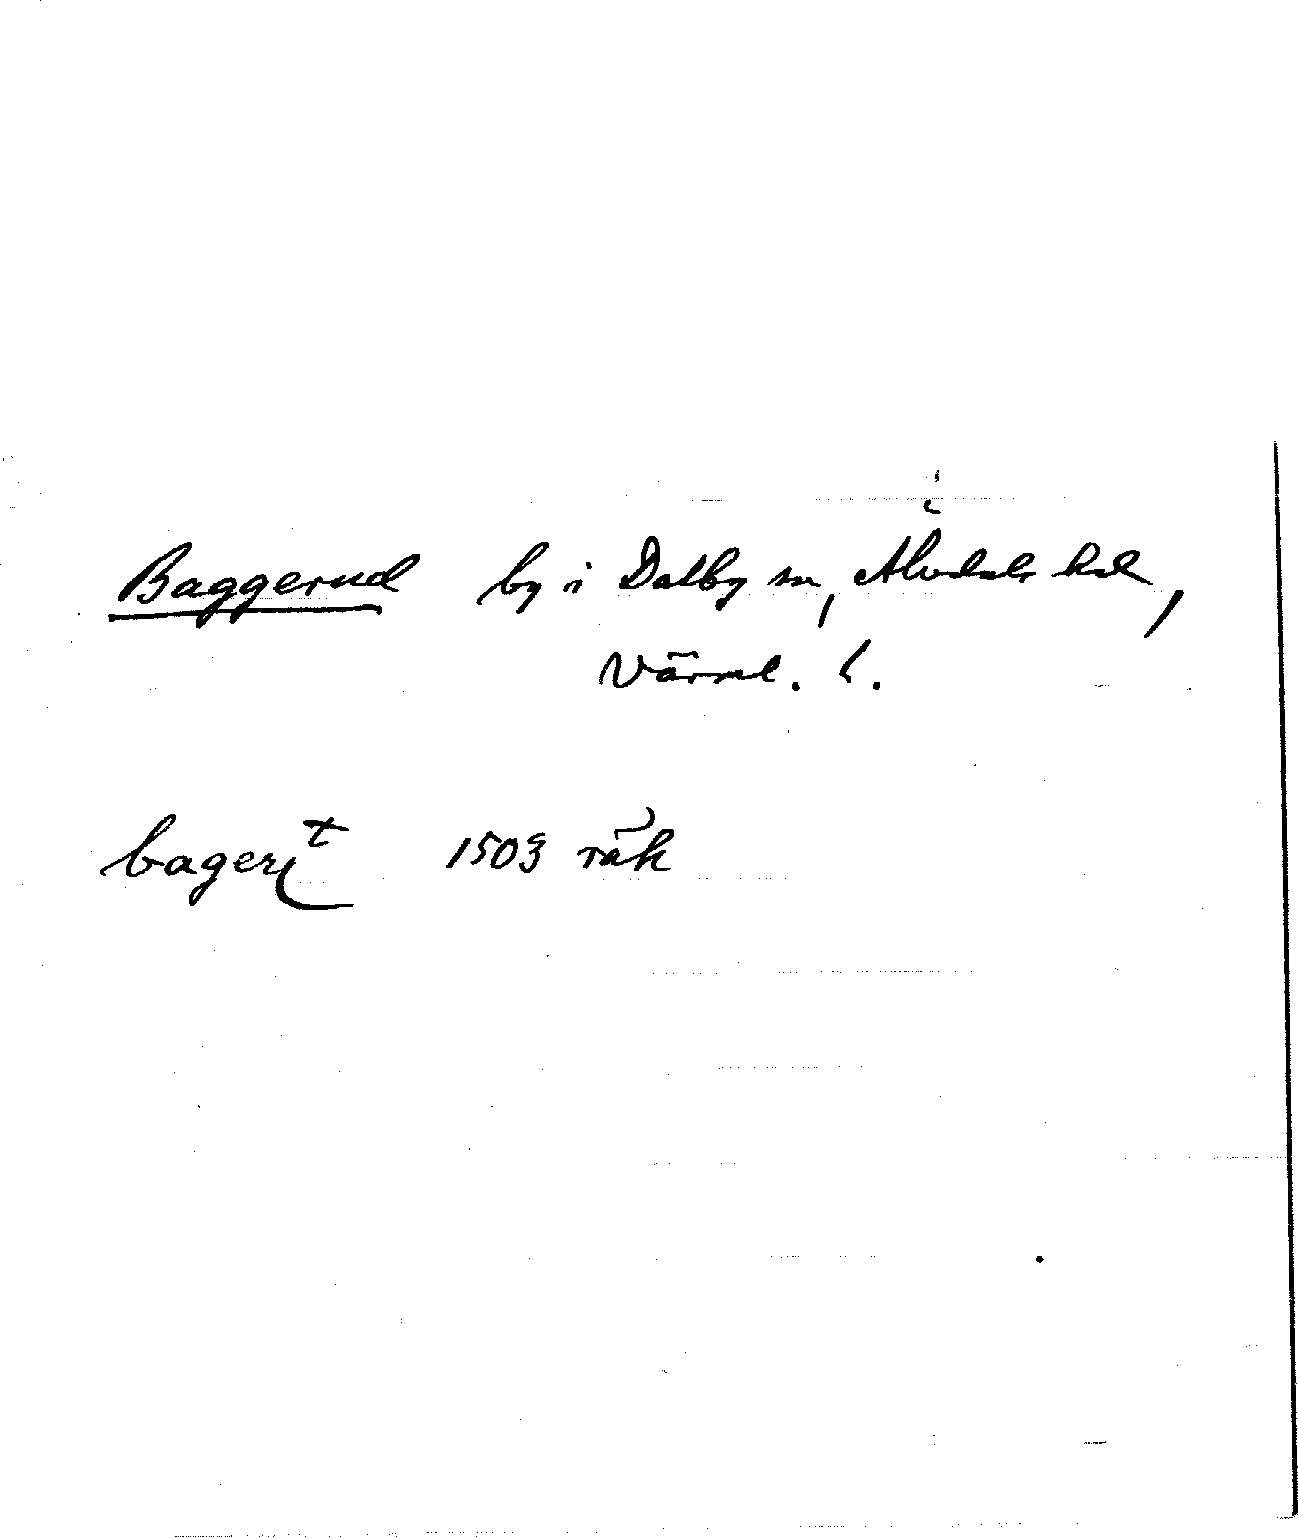 Baggerud by i Dalby sn, Älvdals hd,
Värml. l.
bager t 1503 räk